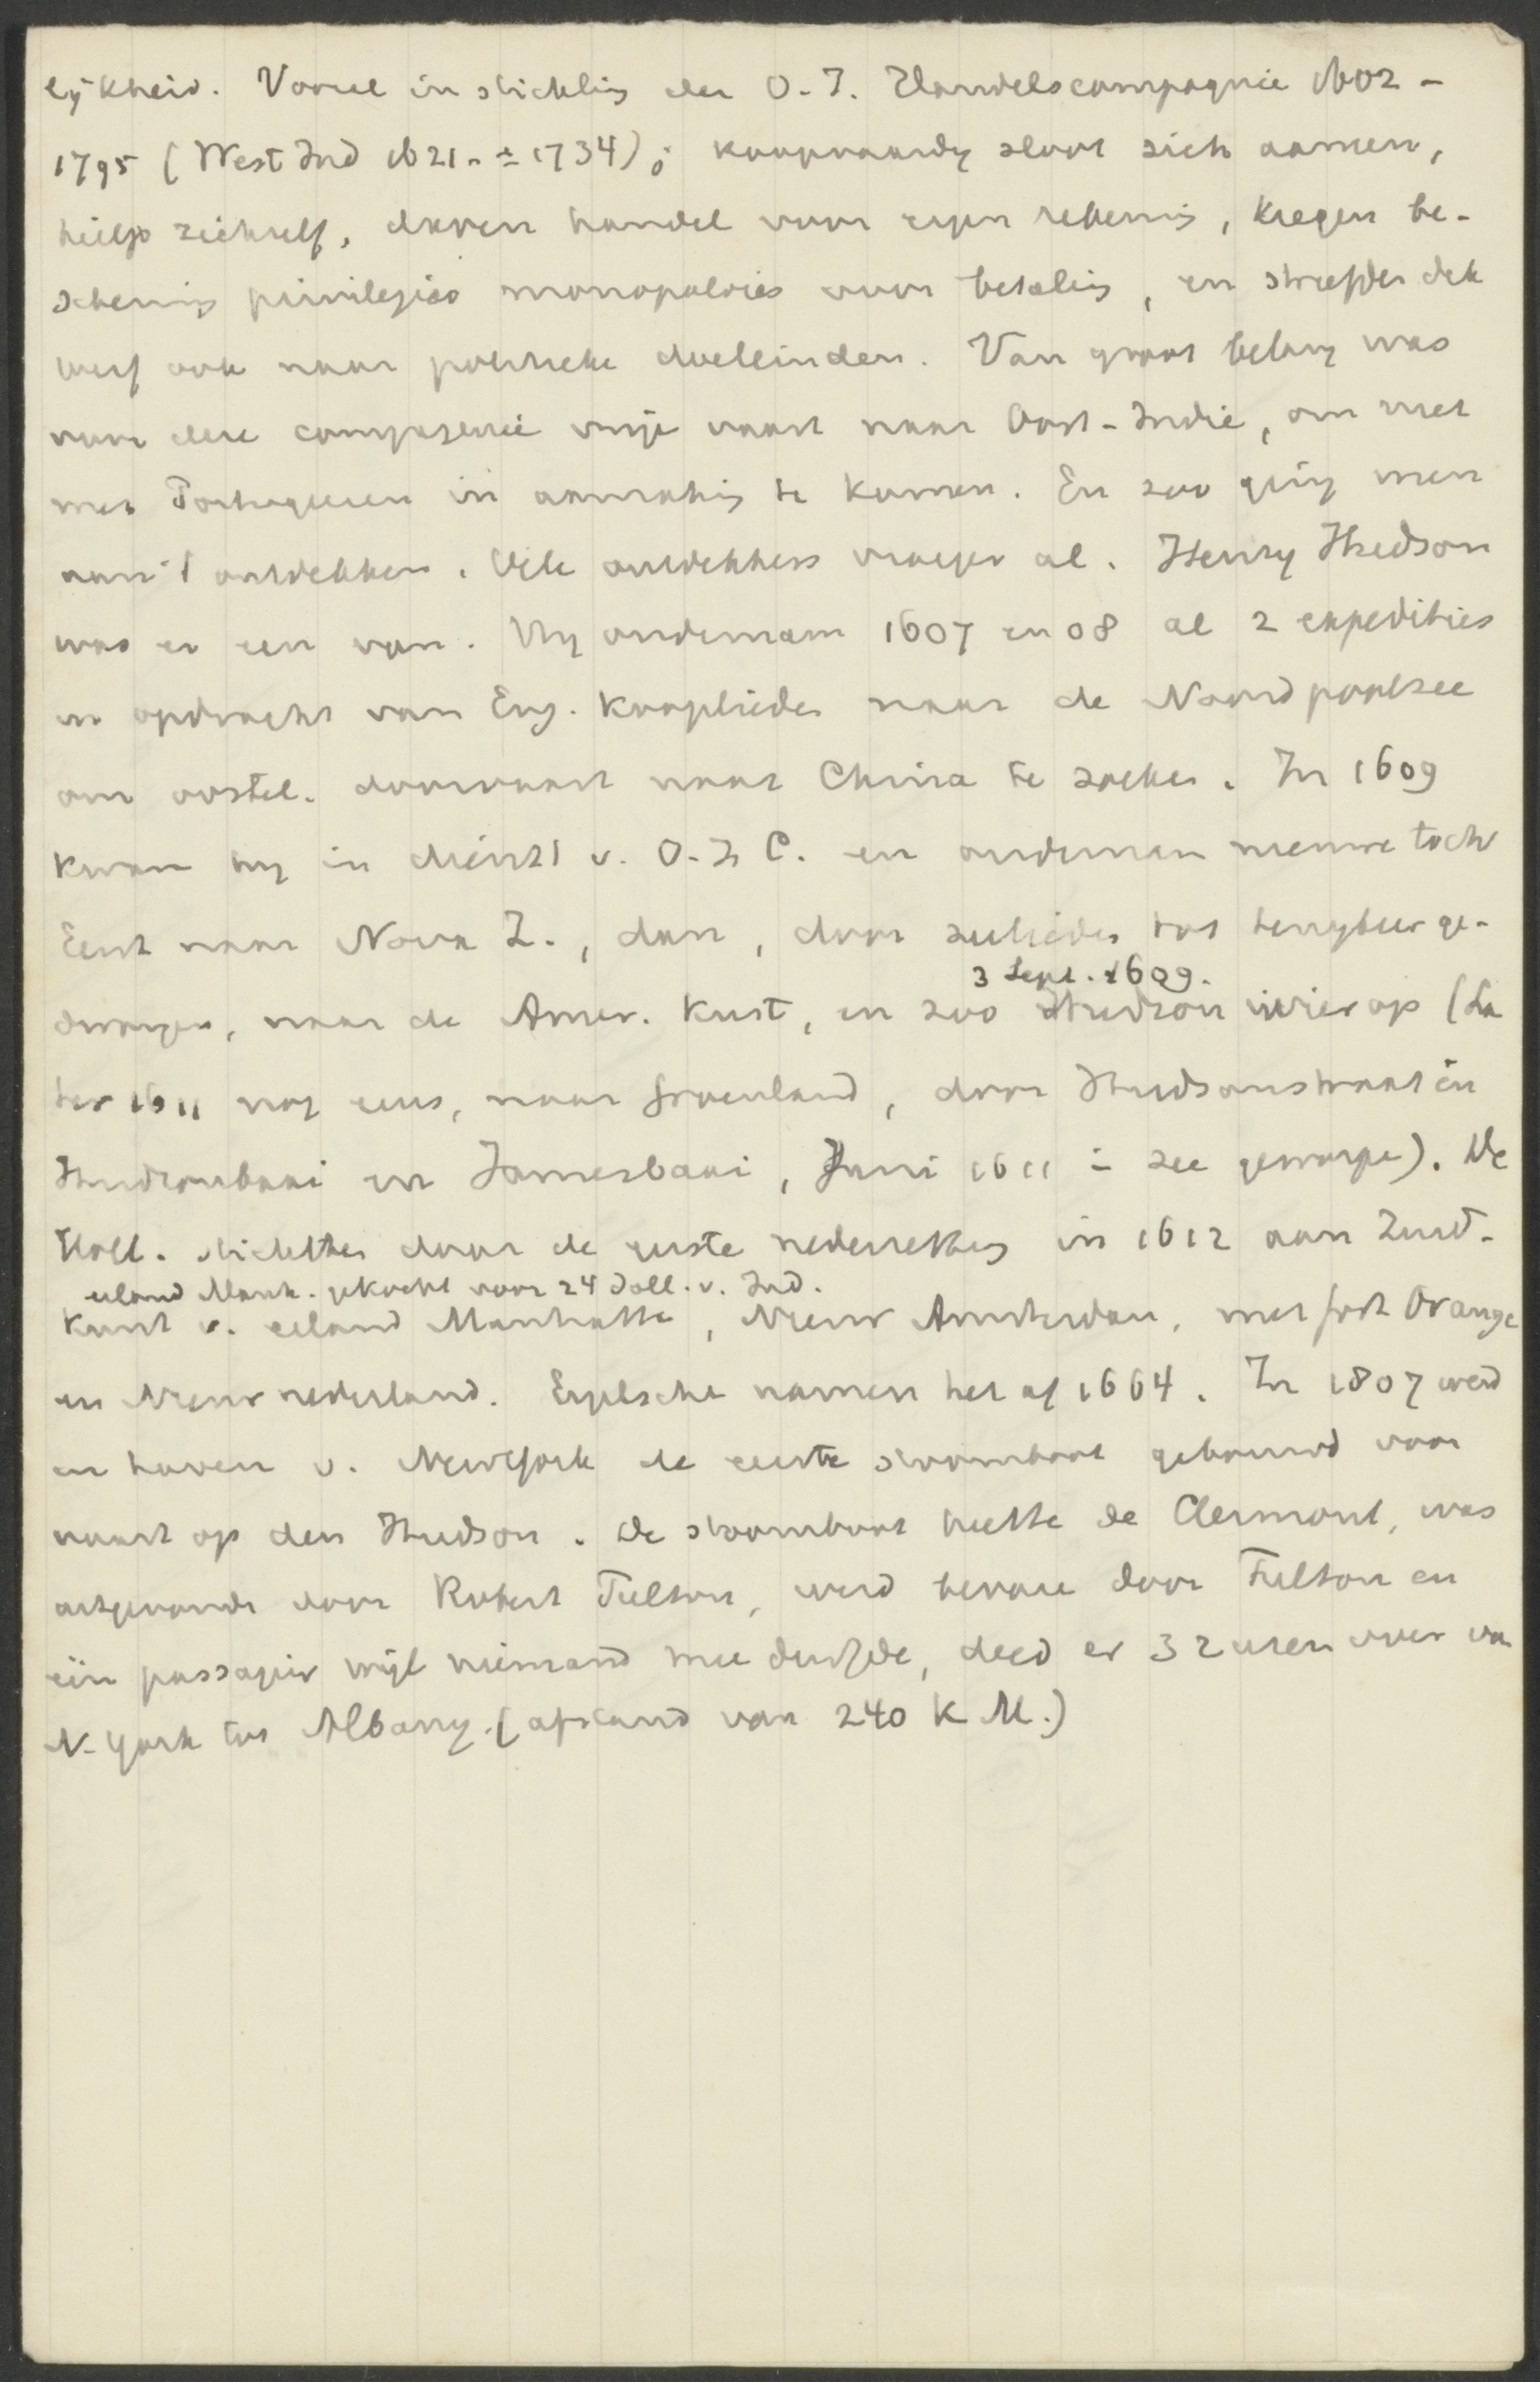 lijkheid. Vooral in stichting der O.-I. Handelscompagnie 1602 -
1795 (West Ind 1621 - ± 1734); koopvaardij sloot zich aaneen,
hielp zichzelf, dreven handel voor eigen rekening, kregen be-
scherming privilegies monopolies voor betaling, en streefden dik
werf ook naar politieke doeleinden. Van groot belang was
voor deze compagnie vrije vaart naar Oost-Indie, om niet
met Portugeezen in aanraking te komen. En zoo ging men
aan 't ontdekken. Vele ontdekkers vroeger al. Henry Hudson
was er een van. Hij ondernam 1607 en 08 al 2 expedities
in opdracht van Eng. kooplieden naar de Noordpoolzee
om oostel. doorvaart naar China te zoeken. In 1609
kwam hij in dienst v. O-I C. en ondernam nieuwe tocht
Eerst naar Nova Z., dan, door zeelieden tot terugkeer ge-
3 Sept. 1609.
dwongen, naar de Amer. kust, en zoo Hudson rivier op (La
ter 1611 nog eens, naar Groenland, door Hudsonstraat in
Hudsonbaai en Jamesbaai, Juni 1611 in zee geworpen). De
Holl. stichtten daar de eerste nederzetting in 1612 aan Zuid-
eiland Manh. gekocht voor 24 doll. v. Ind.
kant v. eiland Manhatte, Nieuw Amsterdam, met fort Orange
en Nieuw nederland. Engelsche namen het af 1664. In 1807 werd
in haven v. New York de eerste stoomboot gebouwd voor
vaart op den Hudson. De stoomboot heette de Clermont, was
uitgevonden door Robert Fulton, werd bevaren door Fulton en
één passagier wijl niemand mee durfde, deed er 32 uren over van
N-York tot Albany. (afstand van 240 K M.)